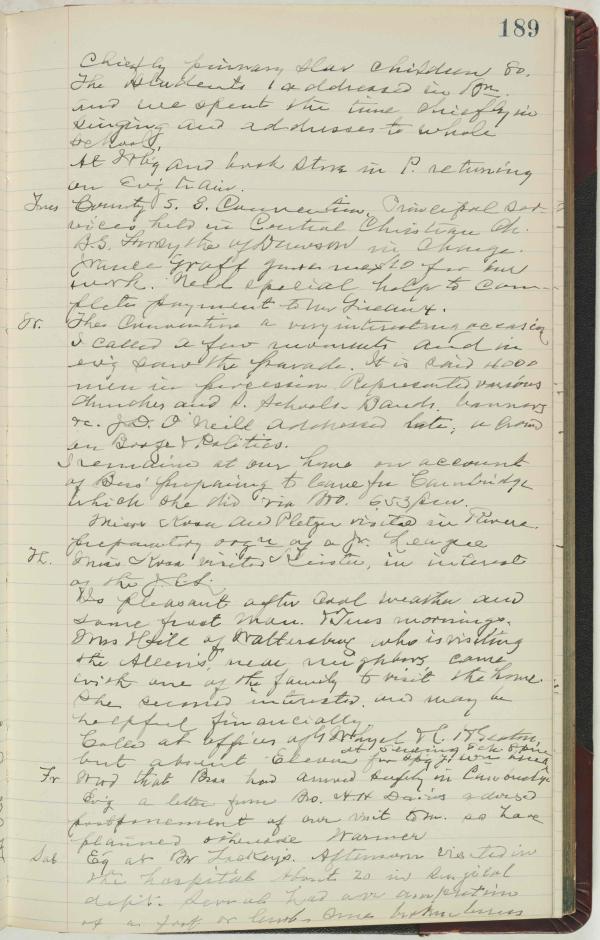 189
Chiefly primary Slav children &c.
The students I addressed in Rm.
and we spent the time chiefly in
singing and addresses to whole
school.
At and book store in P. returning
on Ev'g train.
Tues County S. S. Convention. Principal ser-
vices held in Central Christian Ch.
B.S. Forsythe of Dawson in charge.
Graff gives me $10 for our
work. Need special help to com-
plete payment to
The Convention a very interesting occasion
I called a few moments and in
ev'g saw the parade. It is said 4000
men in procession Represented various
Churches and S. Schools - Bands, banners
&c. J.D. O'Neill addressed late, a crowd
on Booze & Politics.
I remained at our home on account
of Bess' preparing to leave for Cambridge
which she did via BO. 653 p.m.
Misses Kosa and Pletzer visited in Rivere
preparatory orgn of a Jr. League
Th. Miss Kosa visited in interest
of the J.
Do pleasant after cool weather and
some frost Mon. & Tues mornings.
Mrs Hill of Waltersburg who is visiting
the Allen's, near neighbors, came
with one of the family to visit the home.
She seemed interested and may be
helpful financially.
Called at offices of
but absent at sewing sch 8 pre
Fr Word that Bess had arrived safely in Cambridge
Ev'g a letter from Bro. H.H. Davis advised
postponement of our visit to so have
planned otherwise Warmer
Sat Ev at Br Afternoon visited in
the hospital about 20 in surgical
dept. Several had an amputation
of a foot or limb. Some broken